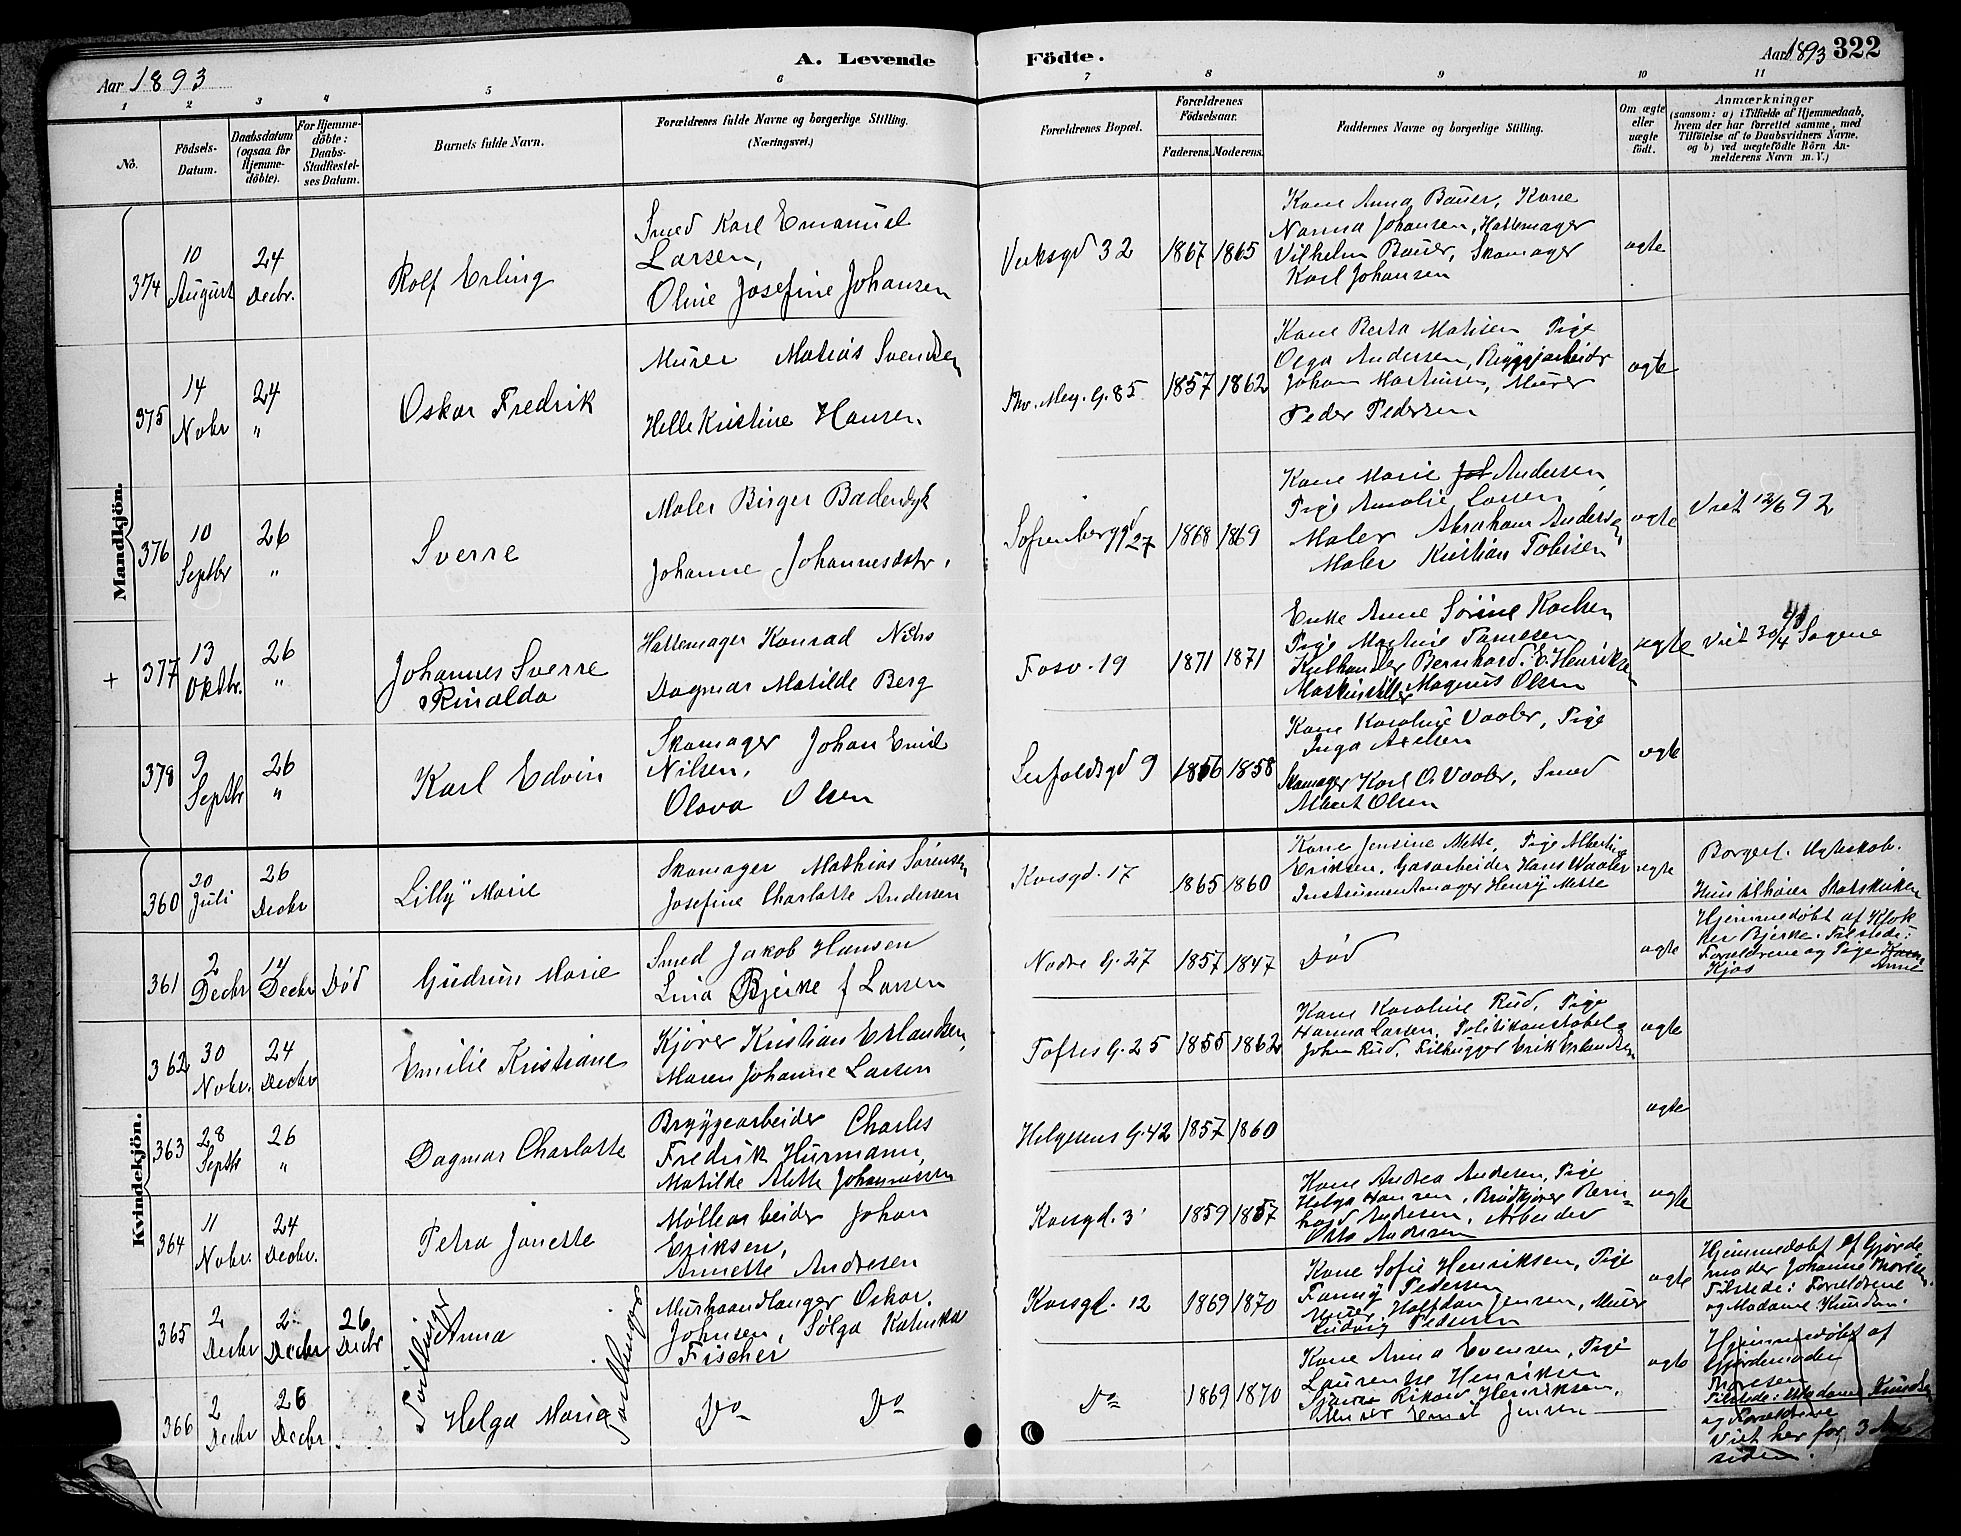 Aar 1893
A. Levende
Födte.
Aar 1893 322
1 2 3 4 5 6 7 8 9 10 11
No.
Födsels-
Datum.
Daabsdatum
(ogsaa for
Hjemme-
døbte).
For Hjemme-
döbte:
Daabs-
Stadfæstel-
ses Datum.
Barnets fulde Navn.
Forældrenes fulde Navne og borgerlige Stilling.
(Næringsvei.)
Forældrenes Bopæl.
Forældrenes
Födselsaar.
Faderens. Moderens.
Faddernes Navne og borgerlige Stilling.
Om ægte
eller
uægte
født.
Anmærkninger
(saasom: a) i Tilfælde af Hjemmedaab,
hvem der har forrettet samme, med
Tilföielse af to Daabsvidners Navne,
og b) ved uægtefödte Börn An-
melderens Navn m. V.)
Mandkjön.
374
10
August
24
Decbr.
Rolf Erling
Smed Karl Emanuel
Larsen,
Oline Josefine Johansen
32
1867 1865
Kone Anna Bauer, Kone
Nanna Johansen, Hattemager
Vilhelm Bauer, Skomager
Karl Johansen
ægte
375
14
Nobr
24
"
Oskar Fredrik
Murer Matias Svendsen
Helle Kristine Hansen
Thv. Mey. G. 85
1857 1862
Kone Berta Matisen Pige
Olga Andersen, Bryggjarbeider
Johan Martinsen, Murer
Peder Pedersen
ægte
376
10
Septbr
26
"
Sverre
Maler Birger Badendyk
Johanne Johannesdatr.
Sofienberggd 27
1868 1869
Kone Marie Joh Andersen,
Pige Amalie Larsen
Maler Abraham Andersen,
Maler Kristian Tobisen
ægte
Viet 12/6 92
+
377
13
Oktbr.
26
"
Johannes Sverre
Rinaldo
Hattemager Konrad Niels
Dagmar Matilde Berg
Fosv. 19
1871 1871
Enke Anne Sörine Karlsen
Pige Martine
Kulhandler Bernhard E. Henriksen
Magnus Olsen
ægte
Viet 30/4 Sagene
378
9
Septbr
26
"
Karl Edvin
Skomager Johan Emil
Nilsen,
Olava Olsen
Seifaldsgd 9
1856 1858
Kone Karoline Vaaler, Pige
Inga Axelsen
Skomager Karl O. Vaaler, Smed
Albert Olsen
ægte
Kvindekjön.
360
30
Juli
26
Decbr
Lilly Marie
Skomager Mathias Sörensen
Josefine Charlotte Andersen
Korsgd. 17
1865 1860
Kone Jensine Mette, Pige Albertine
Eriksen, Gasarbeider Hans Waaler
Instrumentmager Henry Mette
ægte
Borgerl. Ægteskab.
Hun tilhører Statskirken
361
2
Decbr
14
Decbr
Död
Gudrun Marie
Smed Jakob Hansen
Lina Bjerke f Larsen
Nodre G. 27
1857 1847
Död
ægte
Hjemmedøbt af Klok
ker Bjerke. Tilstede:
Forældrene og Pige Karen
Kjos Anne
362
30
Nobr.
24
Decbr
Emilie Kristiane
Kjører Kristian Erlandsen,
Maren Johanne Larsen
Toftes G. 25
1855 1862
Kone Karoline Rud, Pige
Hanna Larsen, Politikonstabel
Johan Rud, Filhugger Erik Erlandsen
ægte
363
28
Septb
26
"
Dagmar Charlotte
Bryggearbeider Charles
Fredrik Hurmann,
Matilde Alette Johannessen
Helgesens G. 42
1857 1860
ægte
364
11
Nobr.
24
Decbr.
Petra Janette
Møllearbeider Johan
Eriksen,
Annette Andresen
Korsgd. 3
1859 1857
Kone Andrea Andersen, Pige
Helga Hansen, Brödkjörer Bern-
hard Andersen, Arbeider
Otto Andersen
ægte
365
2
Decbr
2
Decbr
26
Decbr
Tvillinger
Anna
Tvillinger
Murhaandlanger Oskar
Johnsen, Sölga Katinka
Fischer
Korsgd. 12
1869 1870
Kone Sofie Henriksen, Pige
Fanny Pedersen
Murer Halfdan Jensen, Murer
Ludvig Pedersen
ægte
Hjemmedøbt af Gjorde
moder Johanne Thoresen.
Tilstede: Forældrene
og Madame Knudsen.
366
2
Decbr
26
Decbr
Helga Maria
Do Do
Do
1869 1870
Kone Anna Evensen, Pige
Laurentse Henriksen
Rikard Henriksen,
Murer Emil Jensen
ægte
Hjemmedøbt af
Gjordemoder
Thoresen
Tilstede: Madame Knudsen
og Forældrene
Viet her for 3 Aar
siden.